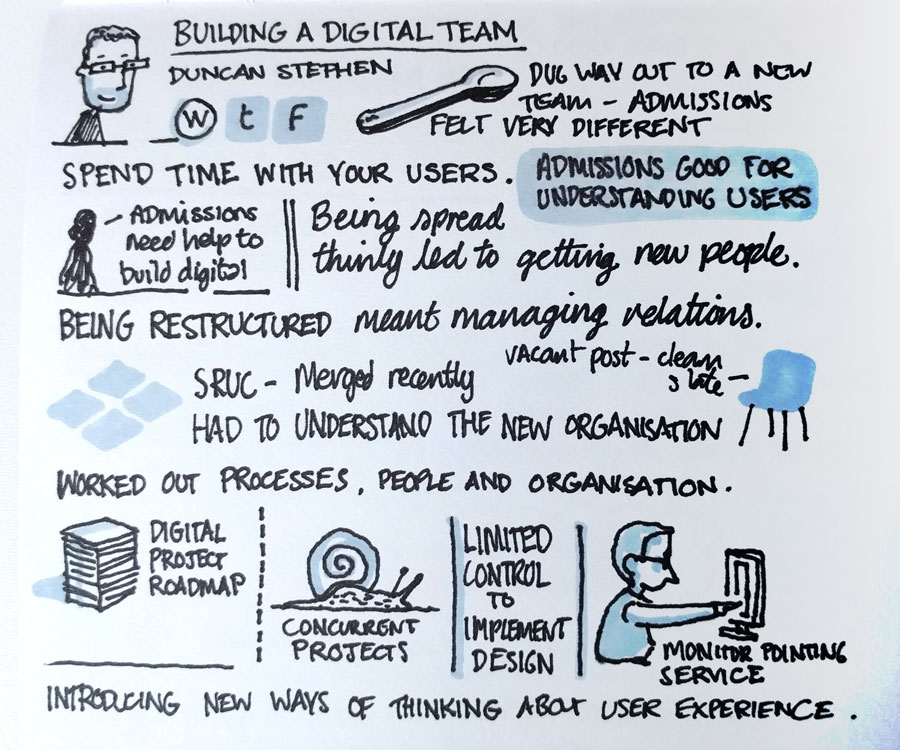 BUILDING A DIGITAL TEAM
DUNCAN STEPHEN
W t F
DUG WAY OUT TO A NEW
TEAM - ADMISSIONS
FELT VERY DIFFERENT
SPEND TIME WITH YOUR USERS.
ADMISSIONS GOOD FOR
UNDERSTANDING USERS
- ADMISSIONS
need help to
build digital
Being spread
thinly led to getting new people.
BEING RESTRUCTURED meant managing relations.
SRUC - Merged recently
vacant post - clean
slate -
HAD TO UNDERSTAND THE NEW ORGANISATION
WORKED OUT PROCESSES, PEOPLE AND ORGANISATION.
DIGITAL
PROJECT
ROADMAP
CONCURRENT
PROJECTS
LIMITED
CONTROL
TO
IMPLEMENT
DESIGN
MONITOR POINTING
SERVICE
INTRODUCING NEW WAYS OF THINKING ABOUT USER EXPERIENCE.